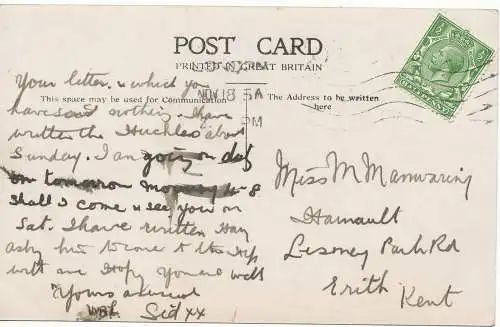 POST CARD
PRINTED IN GREAT BRITAIN
This space may be used for Communication
The Address to be written
here
NOV 18 5 A
PM
Your letter, which you
have said nothing. I have
written the Huckles about
Sunday. I am going on duty
on tomorrow morning 6-8
Shall I come & see you on
Sat. I have written Hay
asking him to come to the
with me Hopg You are well
Yours
Sid xx
Miss M Manwaring
Hainault
Lesney Park Rd
Erith
Kent